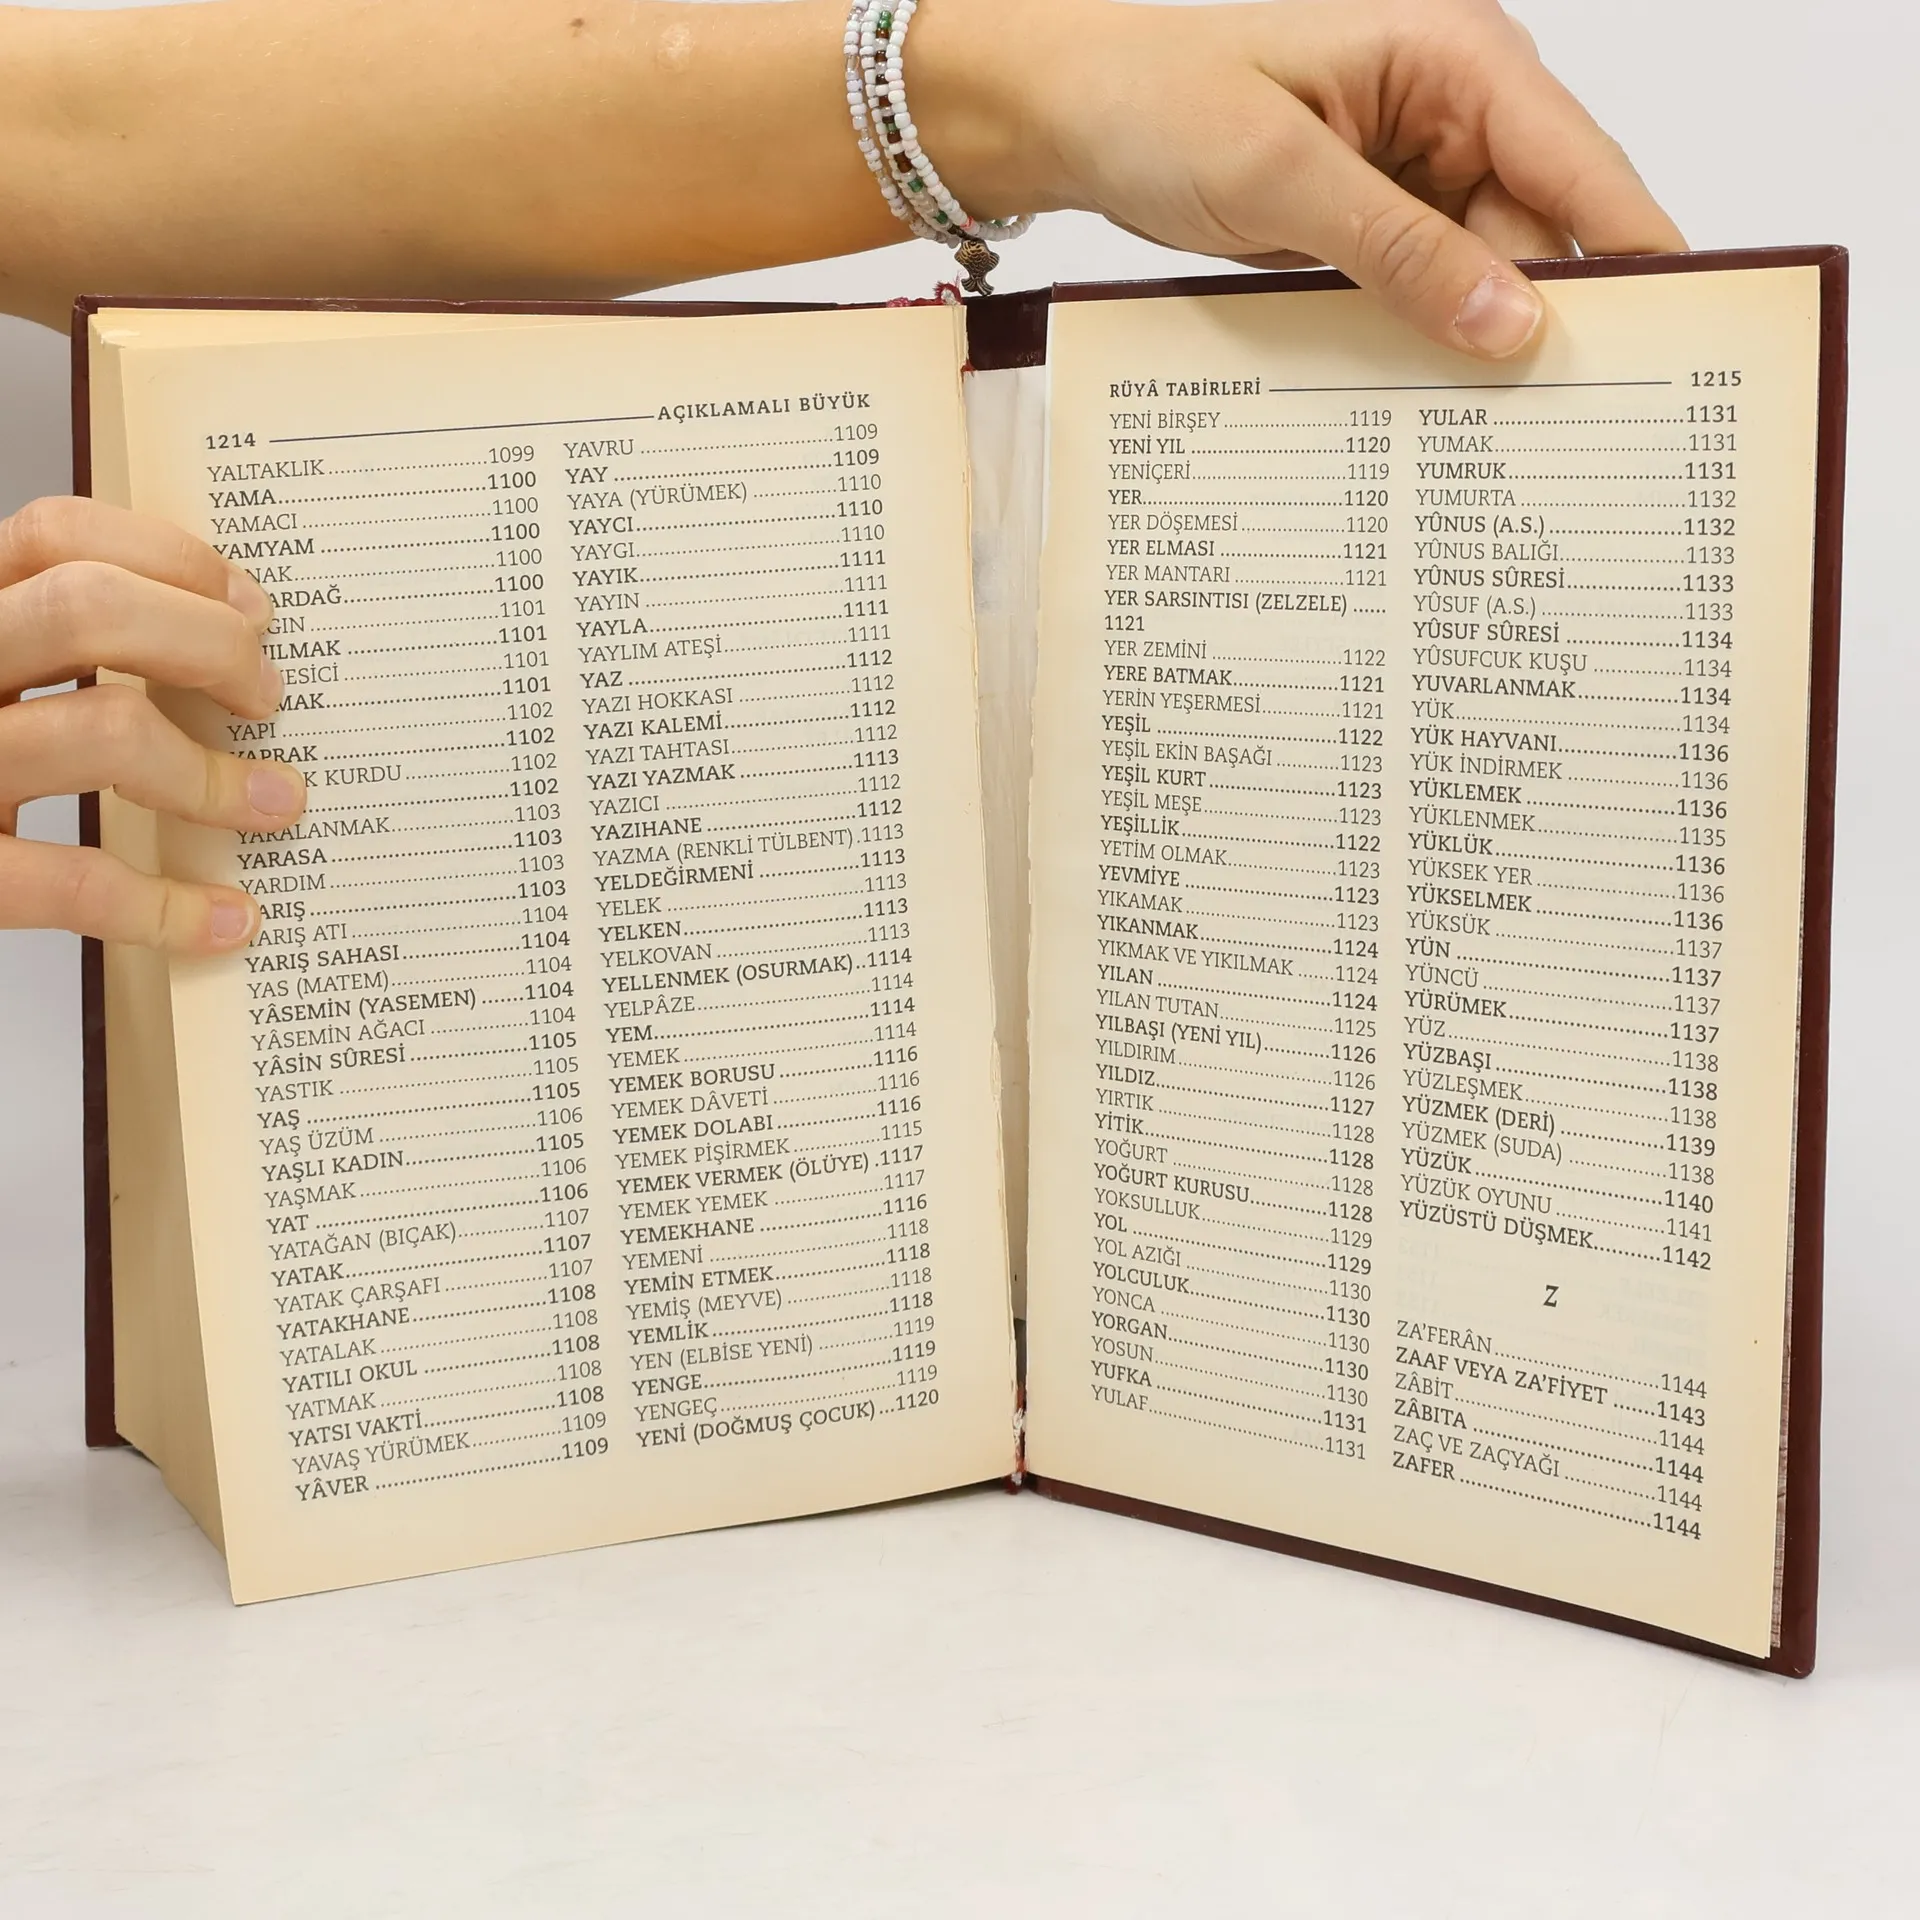 1214 AÇIKLAMALI BÜYÜK
YALTAKLIK 1099
YAMA 1100
YAMACI 1100
YAMYAM 1100
NAK 1100
ARDAĞ 1100
GIN 1101
ILMAK 1101
ESİCİ 1101
MAK 1101
YAPI 1102
YAPRAK 1102
K KURDU 1102
1102
YARALANMAK 1103
YARASA 1103
YARDIM 1103
YARIŞ 1103
YARIŞ ATI 1104
YARIŞ SAHASI 1104
YAS (MATEM) 1104
YÂSEMİN (YASEMEN) 1104
YÂSEMİN AĞACI 1104
YÂSİN SÛRESİ 1105
YASTIK 1105
YAŞ 1105
YAŞ ÜZÜM 1106
YAŞLI KADIN 1105
YAŞMAK 1106
YAT 1106
YATAĞAN (BIÇAK) 1107
YATAK 1107
YATAK ÇARŞAFI 1107
YATAKHANE 1108
YATALAK 1108
YATILI OKUL 1108
YATMAK 1108
YATSI VAKTİ 1108
YAVAŞ YÜRÜMEK 1109
YÂVER 1109
YAVRU 1109
YAY 1109
YAYA (YÜRÜMEK) 1110
YAYCI 1110
YAYGI 1110
YAYIK 1111
YAYIN 1111
YAYLA 1111
YAYLIM ATEŞİ 1111
YAZ 1112
YAZI HOKKASI 1112
YAZI KALEMİ 1112
YAZI TAHTASI 1112
YAZI YAZMAK 1113
YAZICI 1112
YAZIHANE 1112
YAZMA (RENKLİ TÜLBENT) 1113
YELDEĞİRMENİ 1113
YELEK 1113
YELKEN 1113
YELKOVAN 1113
YELLENMEK (OSURMAK) 1114
YELPÂZE 1114
YEM 1114
YEMEK 1114
YEMEK BORUSU 1116
YEMEK DÂVETİ 1116
YEMEK DOLABI 1116
YEMEK PİŞİRMEK 1115
YEMEK VERMEK (ÖLÜYE) 1117
YEMEK YEMEK 1117
YEMEKHANE 1116
YEMENİ 1118
YEMİN ETMEK 1118
YEMİŞ (MEYVE) 1118
YEMLİK 1118
YEN (ELBİSE YENİ) 1119
YENGE 1119
YENGEÇ 1119
YENİ (DOĞMUŞ ÇOCUK) 1120
RÜYÂ TABİRLERİ 1215
YENİ BİRŞEY 1119
YENİ YIL 1120
YENİÇERİ 1119
YER 1120
YER DÖŞEMESİ 1120
YER ELMASI 1121
YER MANTARI 1121
YER SARSINTISI (ZELZELE) ......
1121
YER ZEMİNİ 1122
YERE BATMAK 1121
YERİN YEŞERMESİ 1121
YEŞİL 1122
YEŞİL EKİN BAŞAĞI 1123
YEŞİL KURT 1123
YEŞİL MEŞE 1123
YEŞİLLİK 1122
YETİM OLMAK 1123
YEVMİYE 1123
YIKAMAK 1123
YIKANMAK 1124
YIKMAK VE YIKILMAK 1124
YILAN 1124
YILAN TUTAN 1125
YILBAŞI (YENİ YIL) 1126
YILDIRIM 1126
YILDIZ 1127
YIRTIK 1128
YİTİK 1128
YOĞURT 1128
YOĞURT KURUSU 1128
YOKSULLUK 1129
YOL 1129
YOL AZIĞI 1130
YOLCULUK 1130
YONCA 1130
YORGAN 1130
YOSUN 1130
YUFKA 1131
YULAF 1131
YULAR 1131
YUMAK 1131
YUMRUK 1131
YUMURTA 1132
YÛNUS (A.S.) 1132
YÛNUS BALIĞI 1133
YÛNUS SÛRESİ 1133
YÛSUF (A.S.) 1133
YÛSUF SÛRESİ 1134
YÛSUFCUK KUŞU 1134
YUVARLANMAK 1134
YÜK 1134
YÜK HAYVANI 1136
YÜK İNDİRMEK 1136
YÜKLEMEK 1136
YÜKLENMEK 1135
YÜKLÜK 1136
YÜKSEK YER 1136
YÜKSELMEK 1136
YÜKSÜK 1137
YÜN 1137
YÜNCÜ 1137
YÜRÜMEK 1137
YÜZ 1138
YÜZBAŞI 1138
YÜZLEŞMEK 1138
YÜZMEK (DERİ) 1139
YÜZMEK (SUDA) 1138
YÜZÜK 1140
YÜZÜK OYUNU 1141
YÜZÜSTÜ DÜŞMEK 1142
Z
ZA'FERÂN 1144
ZAAF VEYA ZA'FİYET 1143
ZÂBİT 1144
ZÂBITA 1144
ZAÇ VE ZAÇYAĞI 1144
ZAFER 1144